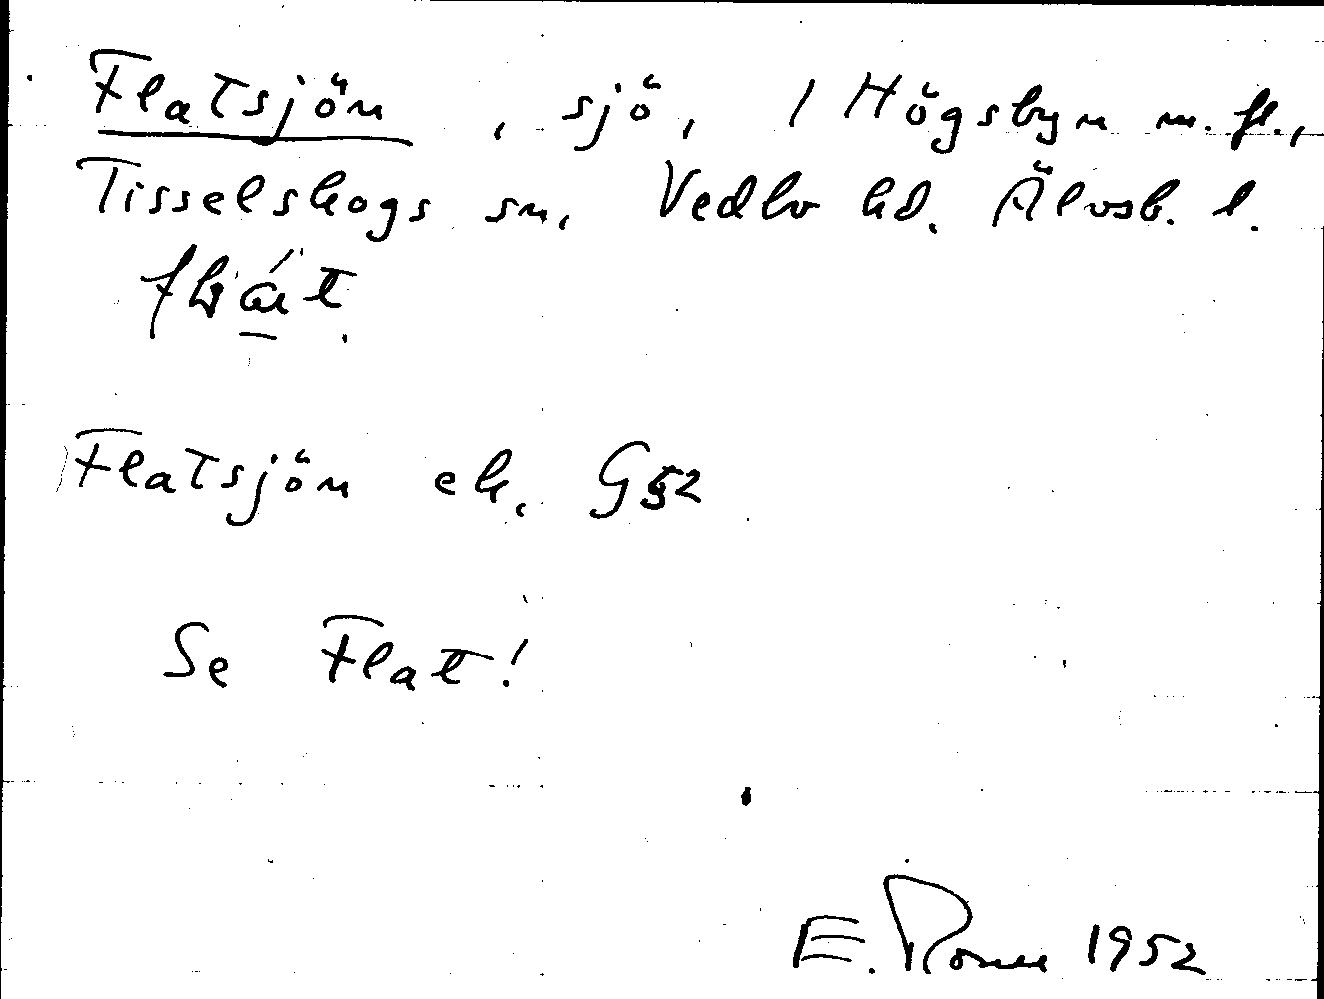 Flatsjön, sjö, / Högsbyn m. fl.,
Tisselskogs sn, Vedbo hd. Älvsb. l.
Flatsjön ek. G52
Se Flat!
E. 1952